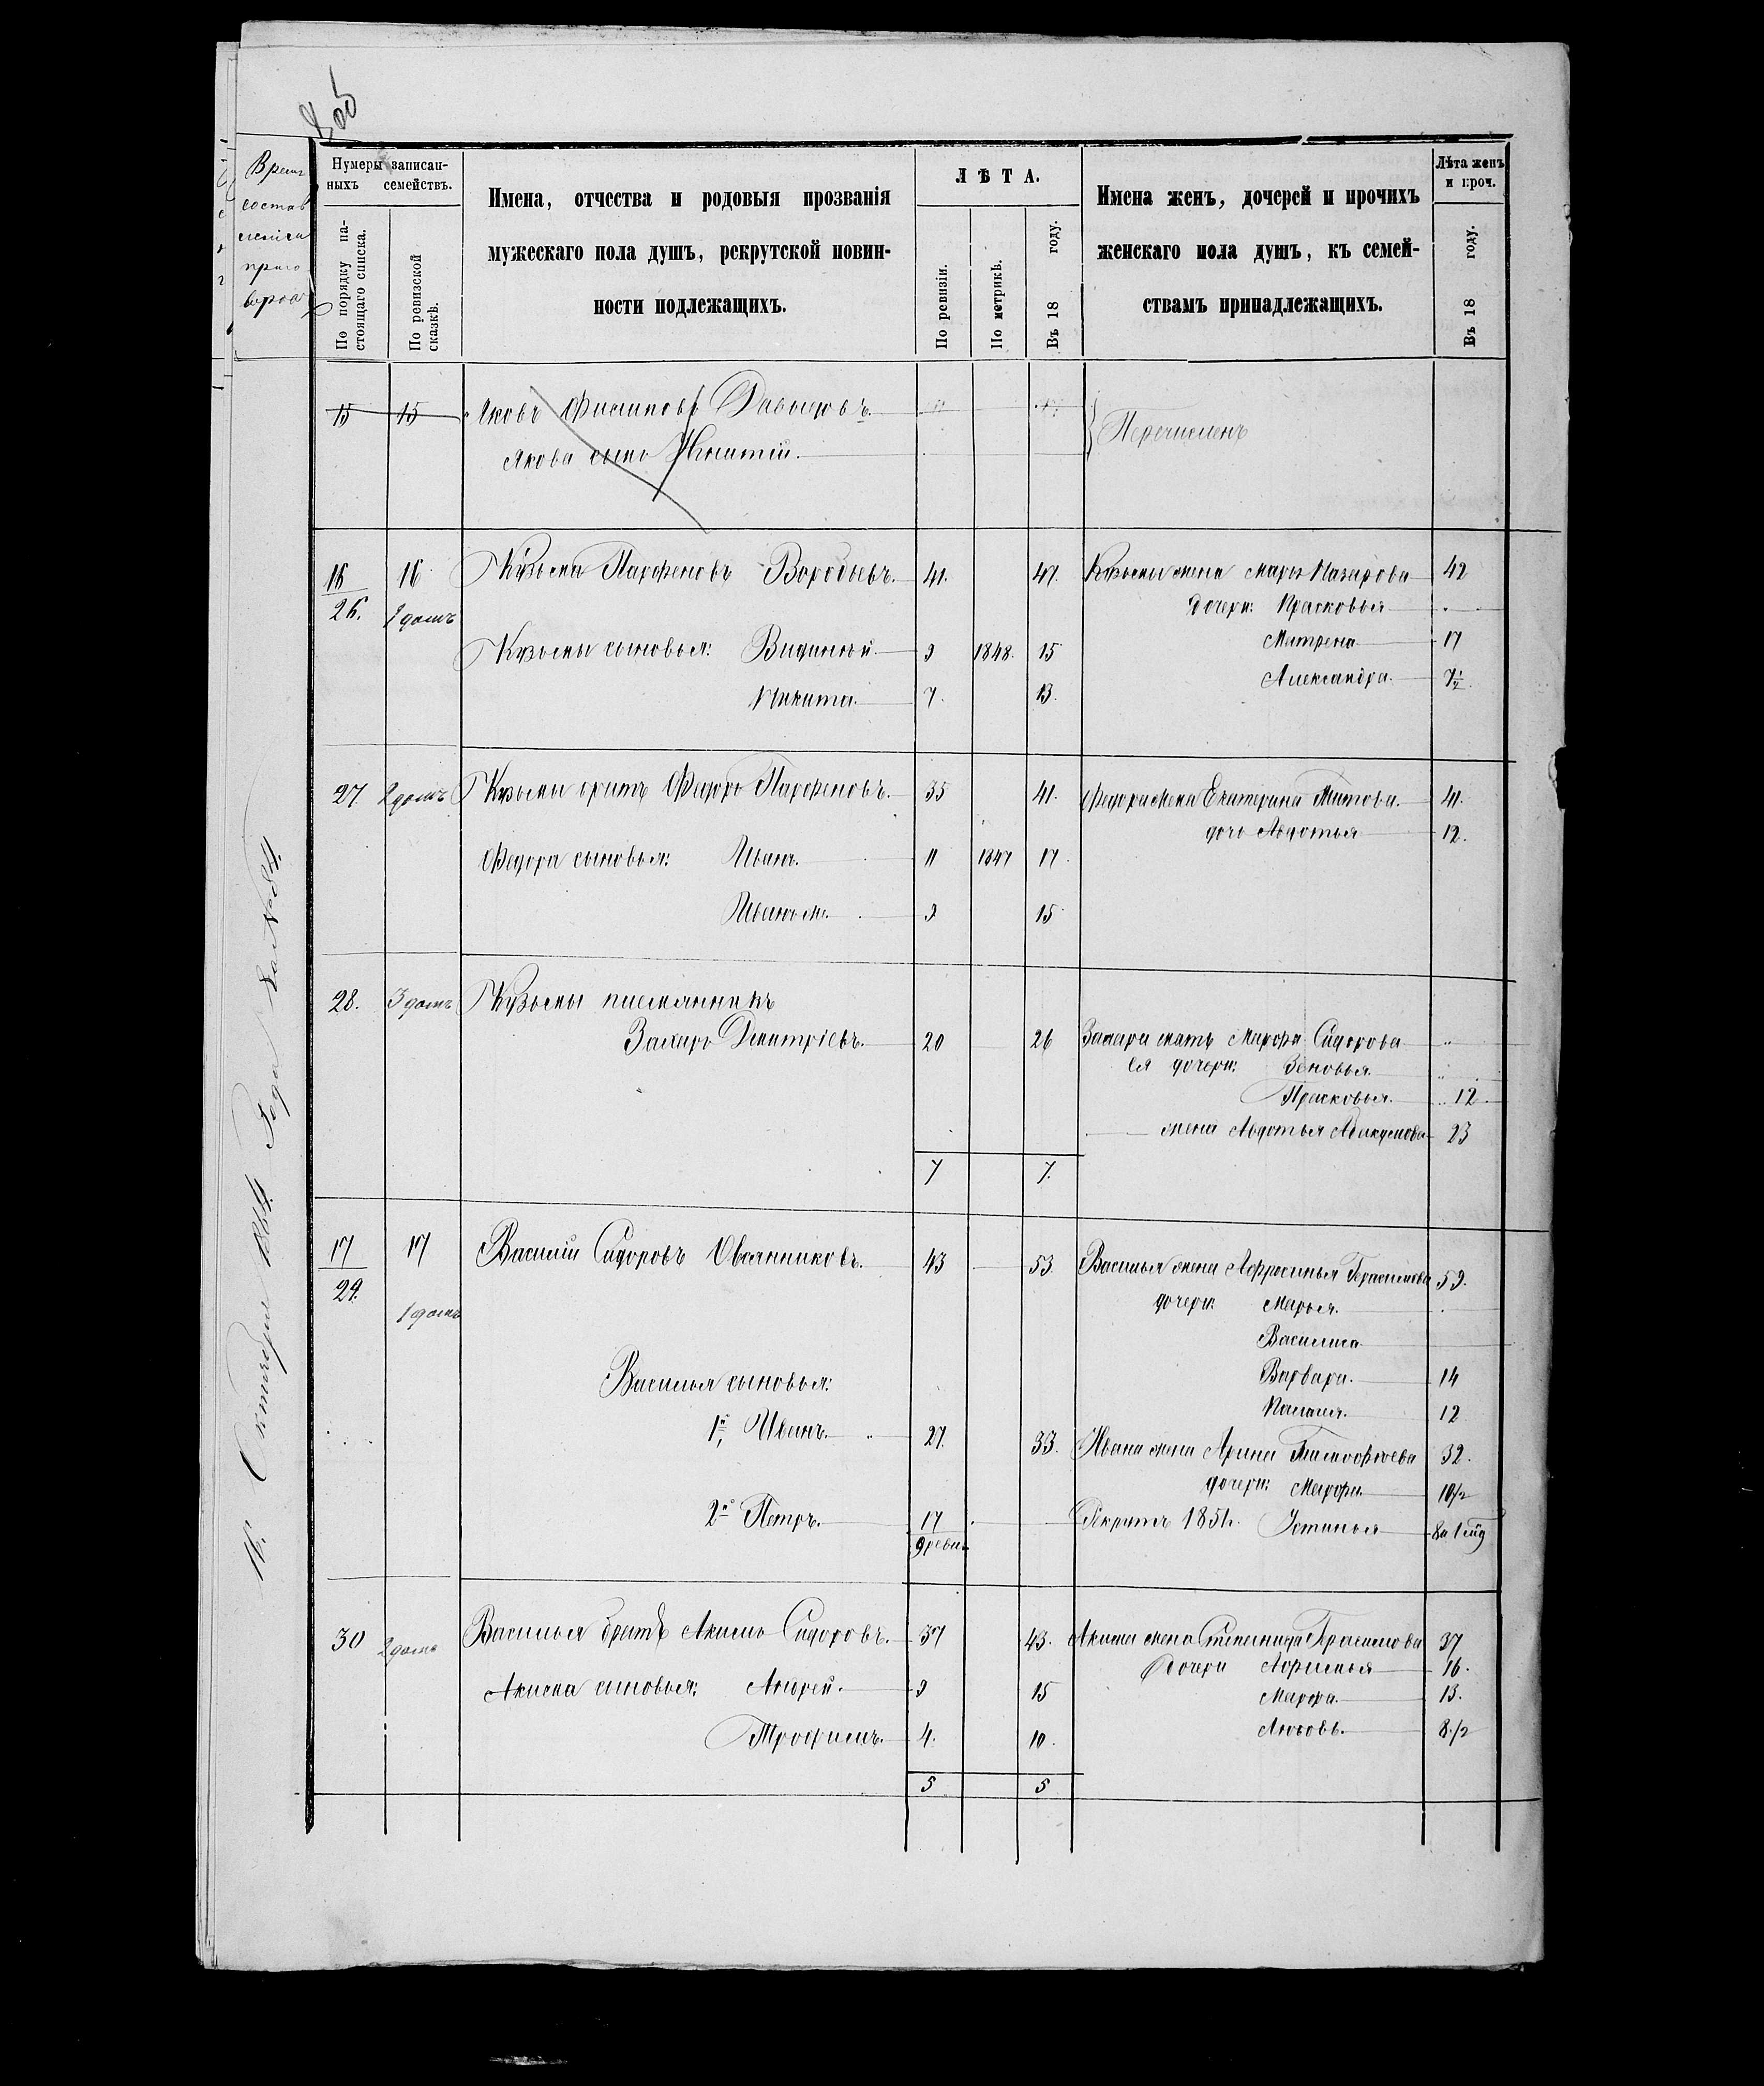 Время
состав
ленiя
приго
вора
Нумеры записан-
ныхъ семействъ.
По порядку на-
стоящаго списка.
По ревизской
сказкѣ.
Имена, отчества и родовыя прозванія
мужескаго пола душъ, рекрутской повин-
ности подлежащихъ.
ЛѢТА.
По ревизіи.
По метрикѣ.
Въ 18 году.
Имена женъ, дочерей и прочихъ
женскаго пола душъ, къ семей-
ствамъ принадлежащихъ.
Лѣта женъ
и проч.
Въ 18 году.
15 15 Яковъ Филиповъ Давыдовъ
Якова сынъ Игнатій.
Перечисленъ
16 16 Кузьма Парфеновъ Воробьевъ. 41. 47. Кузьмы жена Марья Назарова 42
26. 1 домъ Дочери: Прасковья
Кузьмы сыновья: 9 1848. 15 Матрена 17
Никита. 7. 13. Александра. 7½
27 2 домъ Кузьмы братъ Федоръ Парфеновъ. 35 41. Федора жена Екатерина Титова. 41.
дочь Авдотья 12.
Федора сыновья: Иванъ. 11 1847 17.
Иванъ м. 9 15
28. 3 домъ Кузьмы племянникъ
Захаръ Дмитріевъ. 20 26 Захара мать Марфа Сидорова
ея дочери: Зеновья.
Прасковья. 12.
жена Авдотья Абакумова 23
7 7.
17 17 Василій Сидоровъ Овсянниковъ. 43 53 Василья жена Афросинья Герасимова 59.
29. 1 домъ дочери: Марья.
Василиса
Василья сыновья: Варвара. 14
Палагея. 12
1й Иванъ. 27. 33. Ивана жена Арина Тимофеева 32.
дочери: Марфа. 10½
2й Петръ. 17 Рекрутъ 1854г. Устинья
9 реви.
30 2 домъ Василья братъ Акимъ Сидоровъ. 37 43. Акима жена Степанида Герасимова 37
Дочери 16.
Акима сыновья: Андрей. 9 15 Марфа. 13.
Трофимъ. 4. 10. Любовь. 8½
5 5
16 Октября 1864 Года За №84.